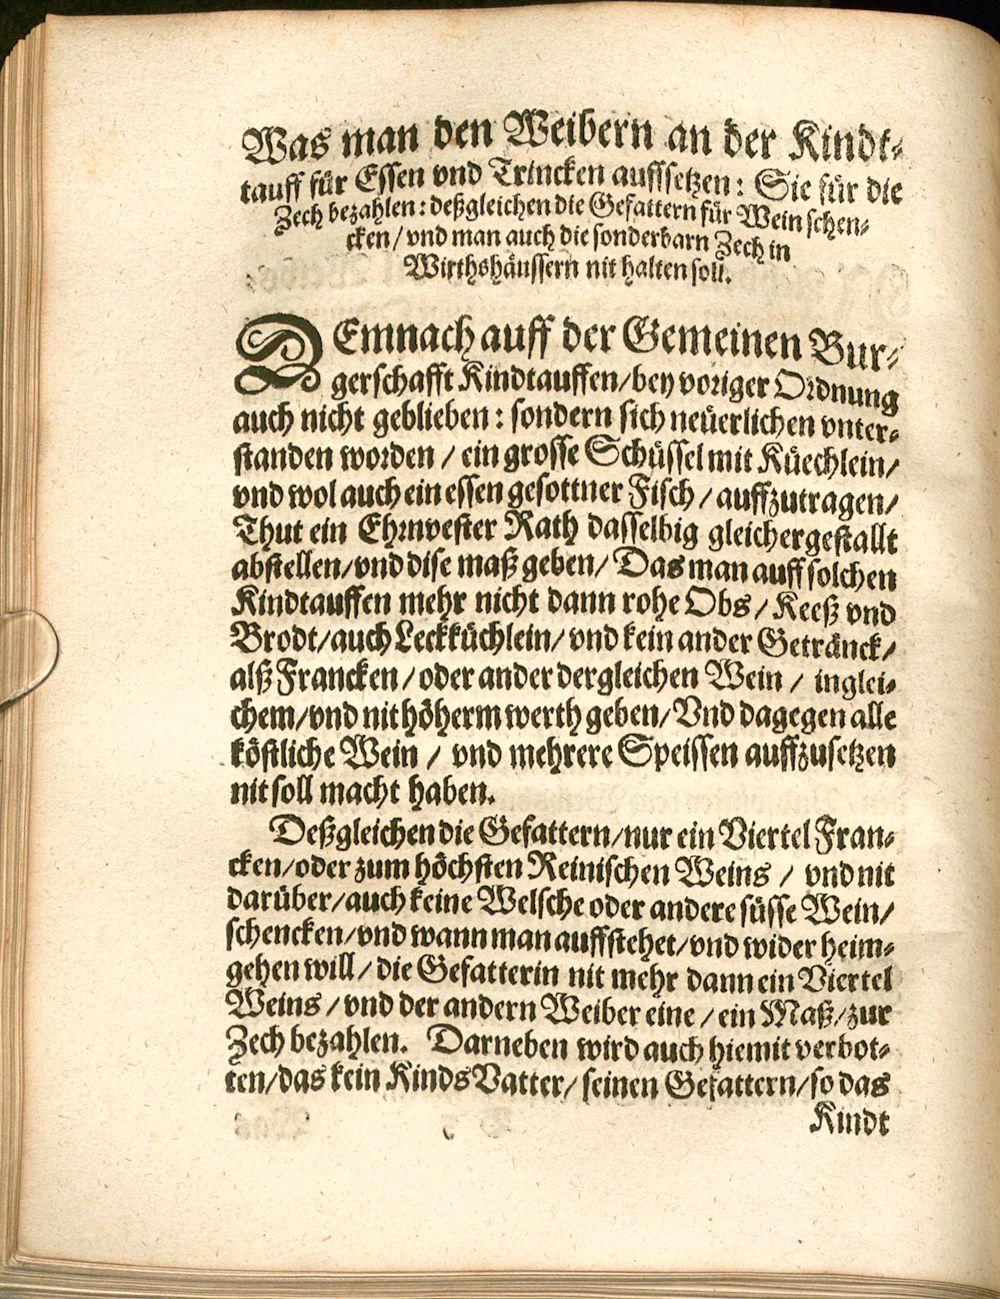 Was man den Weibern an der Kindt-
tauff für Essen vnd Trincken auffsetzen: Sie für die
Zech bezahlen: deßgleichen die Gefattern für Wein schen-
cken/ vnd man auch die sonderbarn Zech in
Wirthshäussern nit halten soll.
DEmnach auff der Gemeinen Bur-
gerschafft Kindtauffen/ bey voriger Ordnung
auch nicht geblieben: sondern sich neüerlichen vnter-
standen worden / ein grosse Schüssel mit Küechlein/
vnd wol auch ein essen gesottner Fisch / auffzutragen/
Thut ein Ehrnvester Rath dasselbig gleichergestallt
abstellen/ vnd dise maß geben/ Das man auff solchen
Kindtauffen mehr nicht dann rohe Obs / Keeß vnd
Brodt/ auch Leckküchlein/ vnd kein ander Getränck/
alß Francken / oder ander dergleichen Wein / inglei-
chem/ vnd nit höherm werth geben/ Vnd dagegen alle
köstliche Wein / vnd mehrere Speissen auffzusetzen
nit soll macht haben.
Deßgleichen die Gefattern/ nur ein Viertel Fran-
cken/ oder zum höchsten Reinischen Weins / vnd nit
darüber/ auch keine Welsche oder andere süsse Wein/
schencken/ vnd wann man auffstehet/ vnd wider heim-
gehen will / die Gefatterin nit mehr dann ein Viertel
Weins / vnd der andern Weiber eine / ein Maß/ zur
Zech bezahlen. Darneben wird auch hiemit verbot-
ten/ das kein Kinds Vatter/ seinen Gefattern/ so das
Kindt